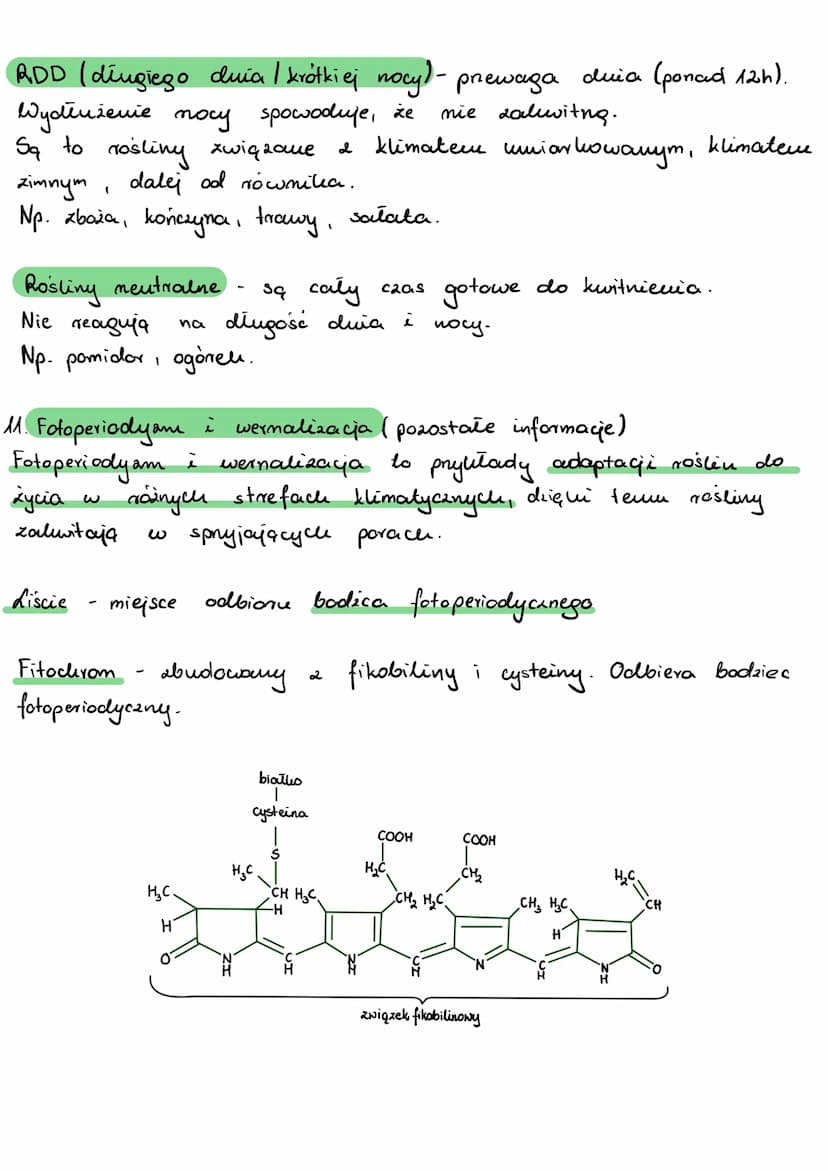 RDD (długiego dnia / krótkiej nocy) - przewaga dnia (ponad 12h).
Wydłużenie nocy spowoduje, że nie zakwitną.
Są to rośliny związane z klimatem umiarkowanym, klimatem
zimnym, dalej od równika.
Np. zboża, kończyna, trawy, sałata.
Rośliny neutralne - są cały czas gotowe do kwitnienia.
Nie reagują na długość dnia i nocy.
Np. pomidor, ogórek.
11. Fotoperiodyzm i wernalizacja (pozostałe informacje)
Fotoperiodyzm i wernalizacja to przykłady adaptacji roślin do
życia w różnych strefach klimatycznych, dzięki temu rośliny
zakwitają w sprzyjających porach.
Liście - miejsce odbioru bodźca fotoperiodycznego
Fitochrom - zbudowany z fikobiliny i cysteiny. Odbiera bodziec
fotoperiodyczny.
białko
cysteina
S
COOH COOH
H₃C H₂C CH₂ H₂C
H₃C CH H₃C CH₂ H₂C CH₃ H₃C CH
H H H
O N H C H N H C H N C H N H O
związek fikobilinowy